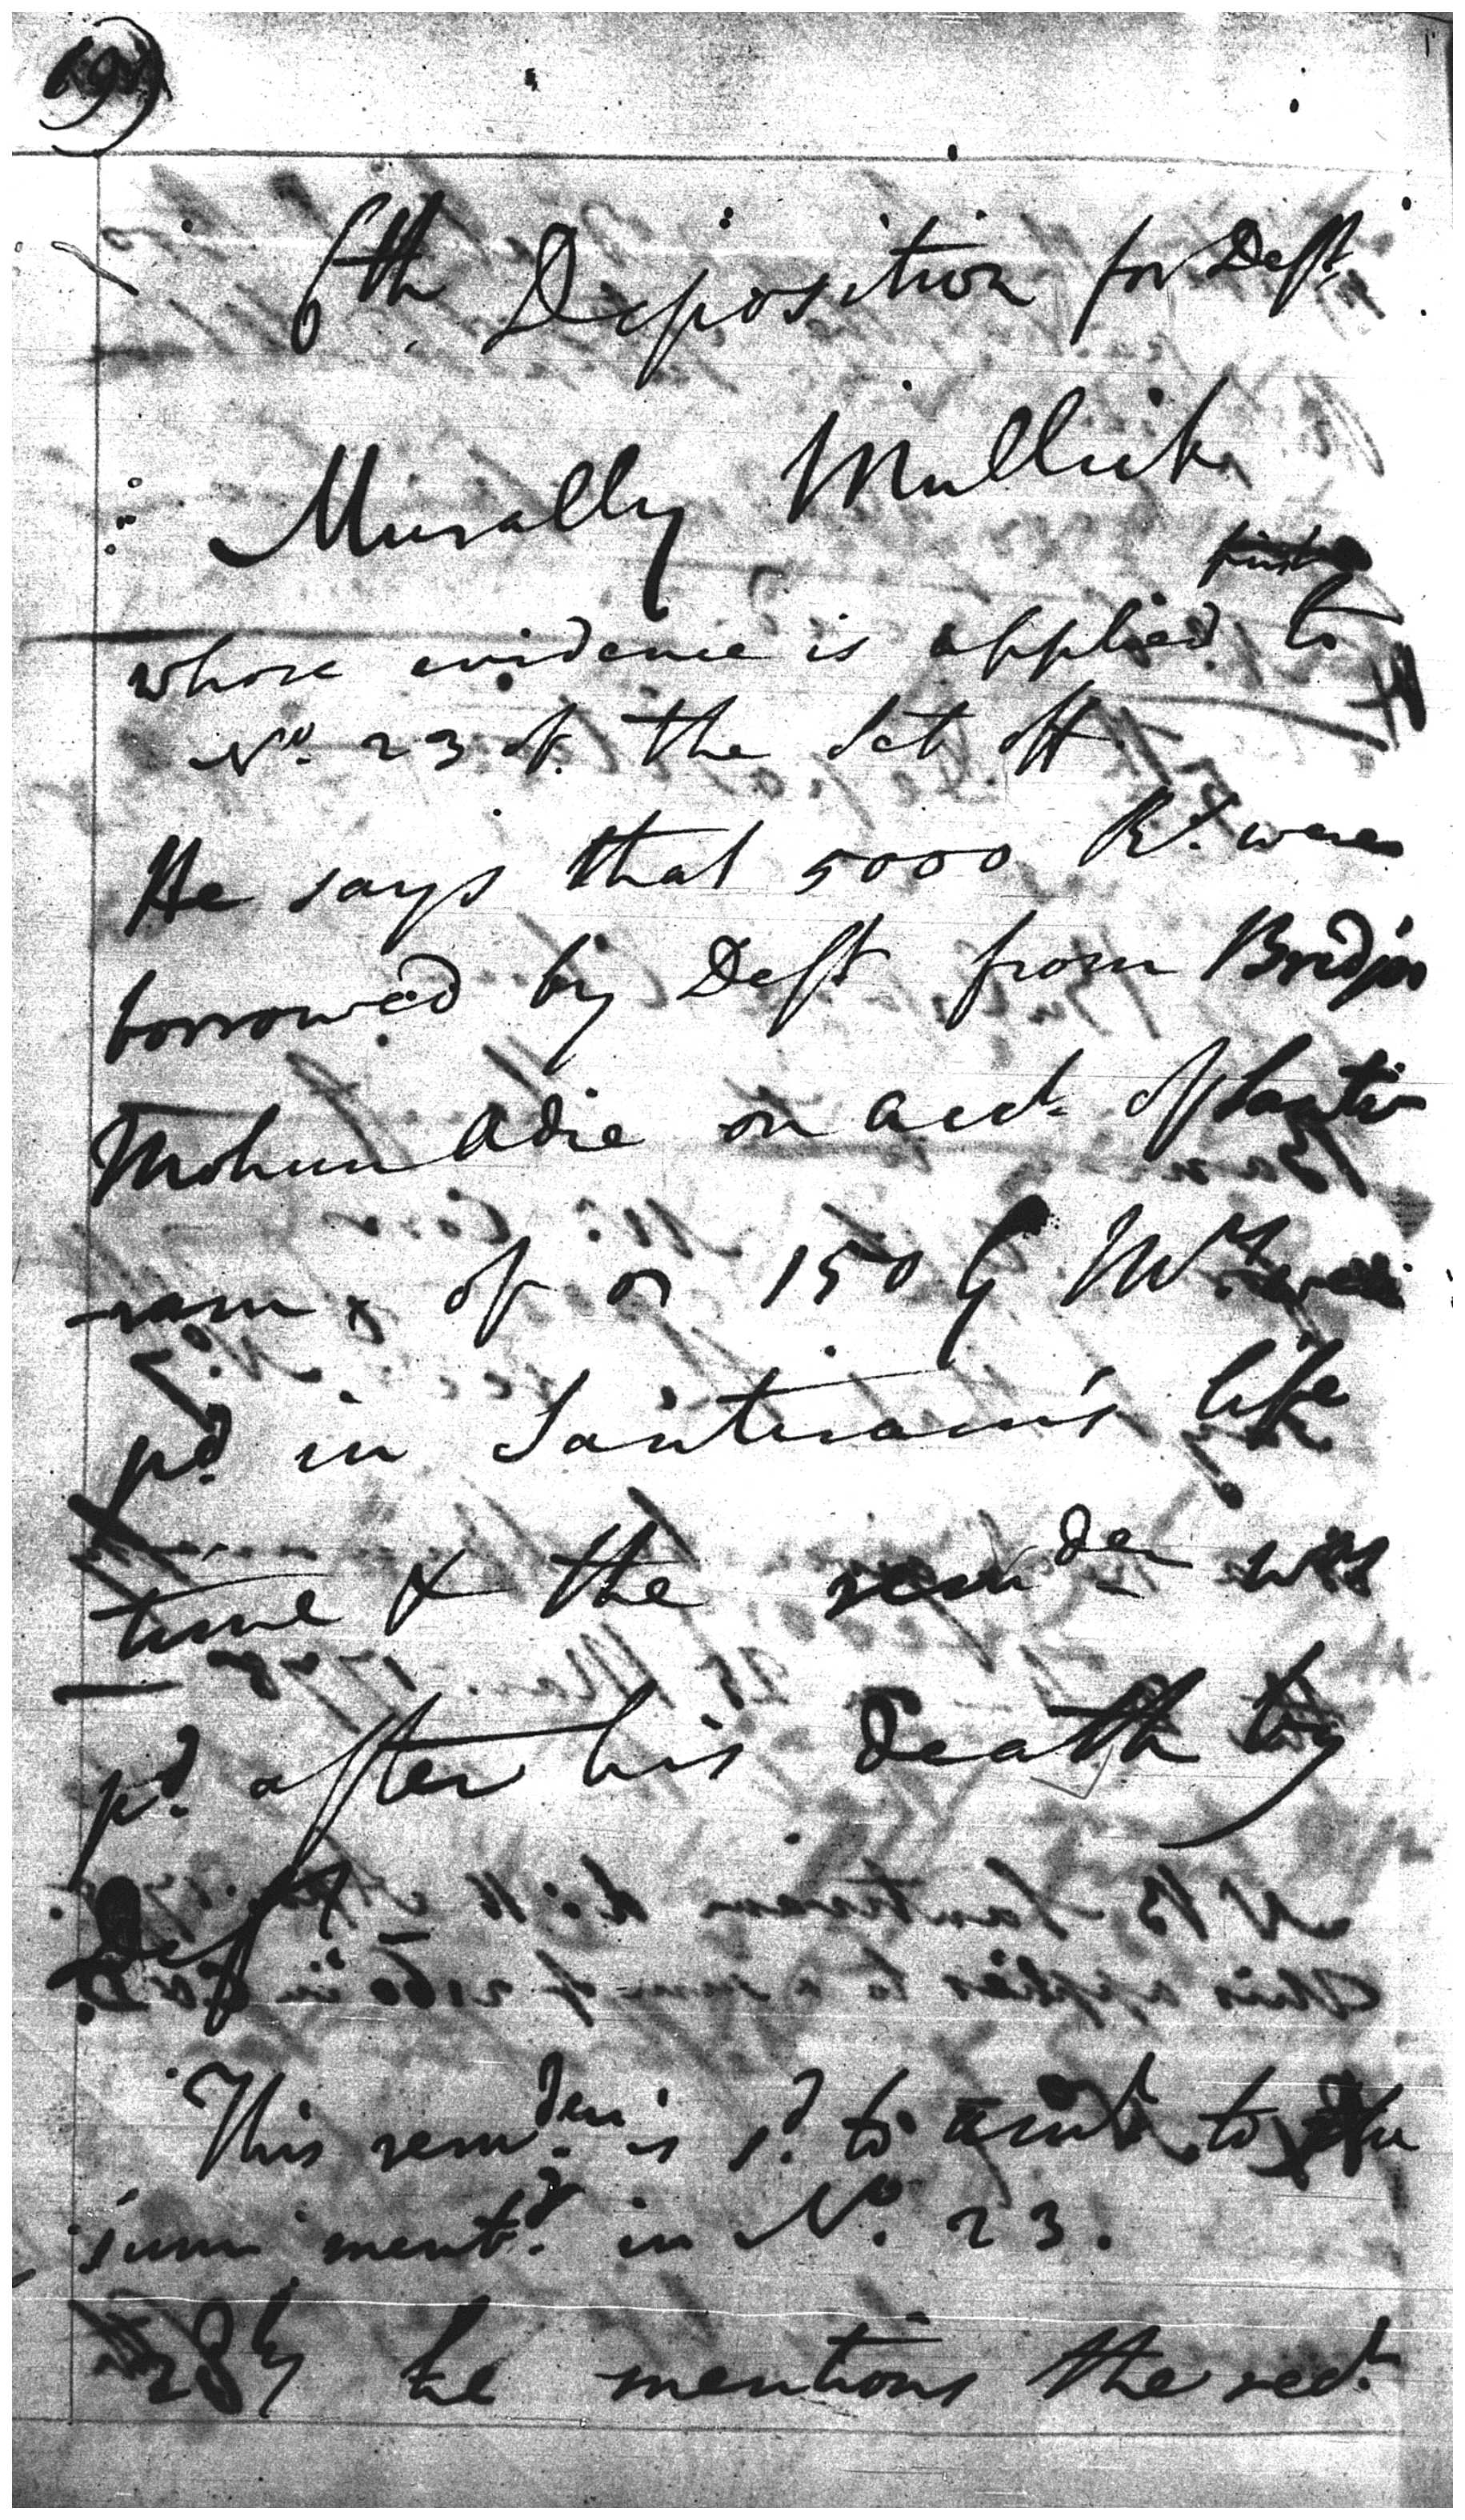 6th Deposition for Deft
Murally Mullick
first
whose evidence is applied to
No. 23 of the Set off.
He says that 5000 Rs. were
borrowed by Deft from Bridjo
Mohun Adie on acct. of Santi-
-ram & of on 150 G Mrs
pd. in Santiram's life
time & the remder was
pd. after his death by
Deft
This remder. is sd. to amt. to the
sum mentd. in No. 23.
2dly he mentions the rect.